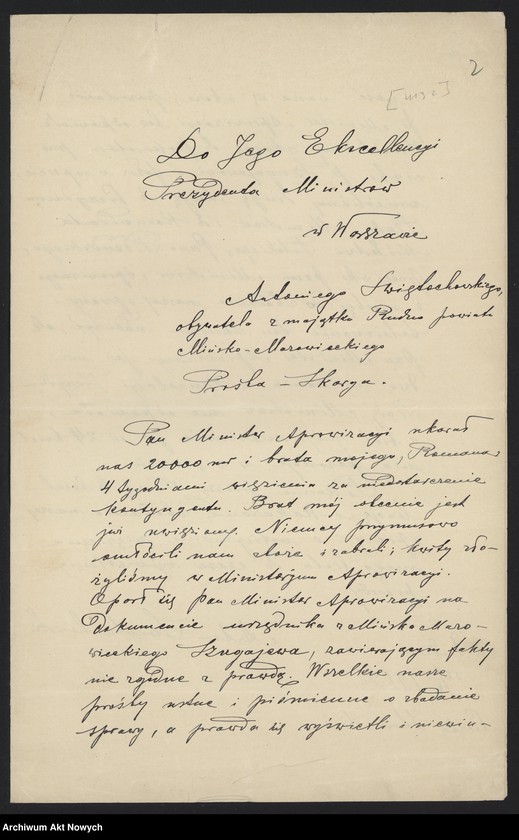 2
Do Jego Ekscellencyi
Prezydenta Ministrów
w Warszawie
Antoniego Świętochowskiego,
obywatela z majątku Rudno powiatu
Mińsko-Mazowieckiego
Prośba - Skarga.
Pan Minister Aprowizacyi ukarał
nas 20000 mr i brata mojego, Romana
4 tygodniami więzienia za niedostarczenie
kontyngentu. Brat mój obecnie jest
już uwięziony. Niemcy przymusowo
omłócili nam zboże i zabrali; kwity zło-
żyliśmy w Ministerjum Aprowizacyi.
Oparł się Pan Minister Aprowizacyi na
dokumencie urzędnika z Mińska Mazo-
wieckiego Szugajewa, zawierającym fakty
nie zgodne z prawdą. Wszelkie nasze
prośby ustne i piśmienne o zbadanie
sprawy, a prawda się wyświetli i niewin-
Archiwum Akt Nowych